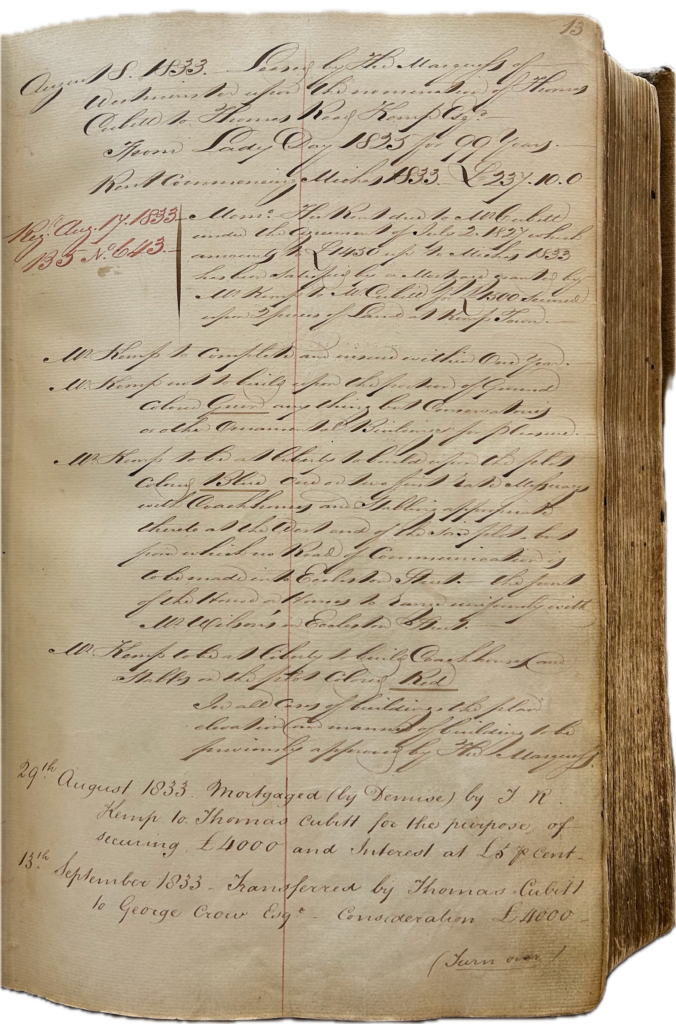 13
August 8. 1833. Leased by The Marquess of
Westminster upon the nomination of Thomas
Cubitt to Thomas Read Kemp Esqre
From Lady Day 1825 for 99 Years.
Rent Commencing Michs 1833. £237.10.0
Regd Aug. 17. 1833
135 No. 643.
Memo. The Rent due to Mr Cubitt
under the agreement of July 2. 1827 which
amounts to £1450 up to Michs 1833
has been satisfied by a Mortgage granted by
Mr Kemp to Mr Cubitt for £1500 secured
upon 2 pieces of Land at Kemp Town.
Mr Kemp to complete and insure within One Year.
Mr Kemp not to build upon the portion of Ground
colored Green any thing but Conservatories
or other Ornamental Buildings for pleasure.
Mr Kemp to be at liberty to build upon the plot
colored Blue one or two first rate Messuages
with Coachhouses and Stabling appropriated
thereto at the West end of the said plot, but
from which no Road of Communication is
to be made into Eccleston Street. the front
of the House or Houses to range uniformly with
Mr Watson's in Eccleston Street.
Mr Kemp to be at liberty to build Coachhouses and
Stables on the plot colored Red
In all cases of building the plan
elevation and manner of building to be
previously approved by The Marquess.
29th August 1833. Mortgaged (by Demise) by T. R.
Kemp to Thomas Cubitt for the purpose of
securing £4000 and Interest at £5 p Cent
13th September 1833 - Transferred by Thomas Cubitt
to George Crow Esqre - Consideration £4000
(Turn over)